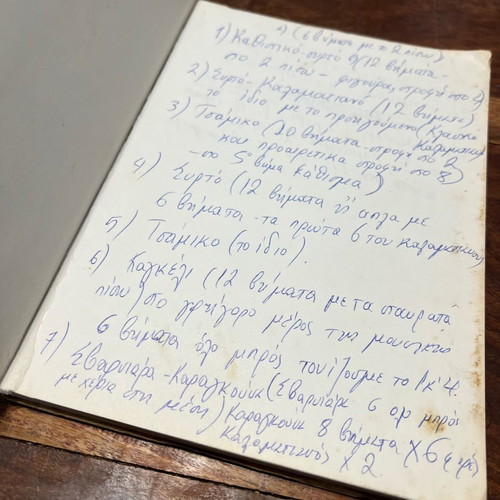 α) (6 βήματα με τα 2 πίσω)
1) Καθιστικό-συρτό ή (12 βήματα-
στο 2 πίσω - φιγούρας στροφή στο
2) Συρτό-Καλαματιανό (12 βήματα)
το ίδιο με το προηγούμενο (κλασικό
Καλαματιανό)
3) Τσάμικο (10 βήματα-στροφή στο 2
και προαιρετικα στροφή στο 8)
-στο 5ο βήμα κάθισμα)
4) Συρτό (12 βήματα ή απλα με
6 βήματα-τα πρώτα 6 του καλαματιανού
5) Τσάμικο (το ίδιο).
6) Καγκέλι (12 βήματα με τα σταυρωτά
πίσω) στο γρήγορο μέρος της μουσικής
6 βήματα όλο μπρός τονίζουμε το 1κ'4.
7) Σβαρνιάρα-Καραγκούνα (Σβαρνιάρα 6 μπρός
με χέρια στη μέση) Καραγκούνα 8 βήματα X6 φορές
Καλαματιανός X2